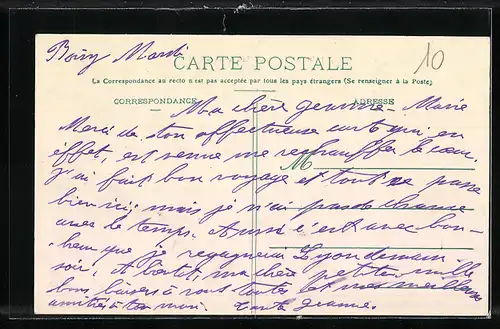 Boisy Mardi
10
CARTE POSTALE
La Correspondance au recto n'est pas acceptée par tous les pays étrangers (Se renseigner à la Poste)
CORRESPONDANCE
ADRESSE
Ma chère Jeanne-Marie
Merci de ton affectueuse carte qui, en
effet, est venue me réchauffer le cœur.
M
J'ai fait bon voyage et tout se passe
bien ici; mais je n'ai pas de chance
avec le temps. Aussi c'est avec bon-
heur que je regagnerai Lyon demain
soir. A bientôt, ma chère petite, mille
bons baisers à vous toutes et mes meilleures
amitiés à ton mari. Tante Jeanne.